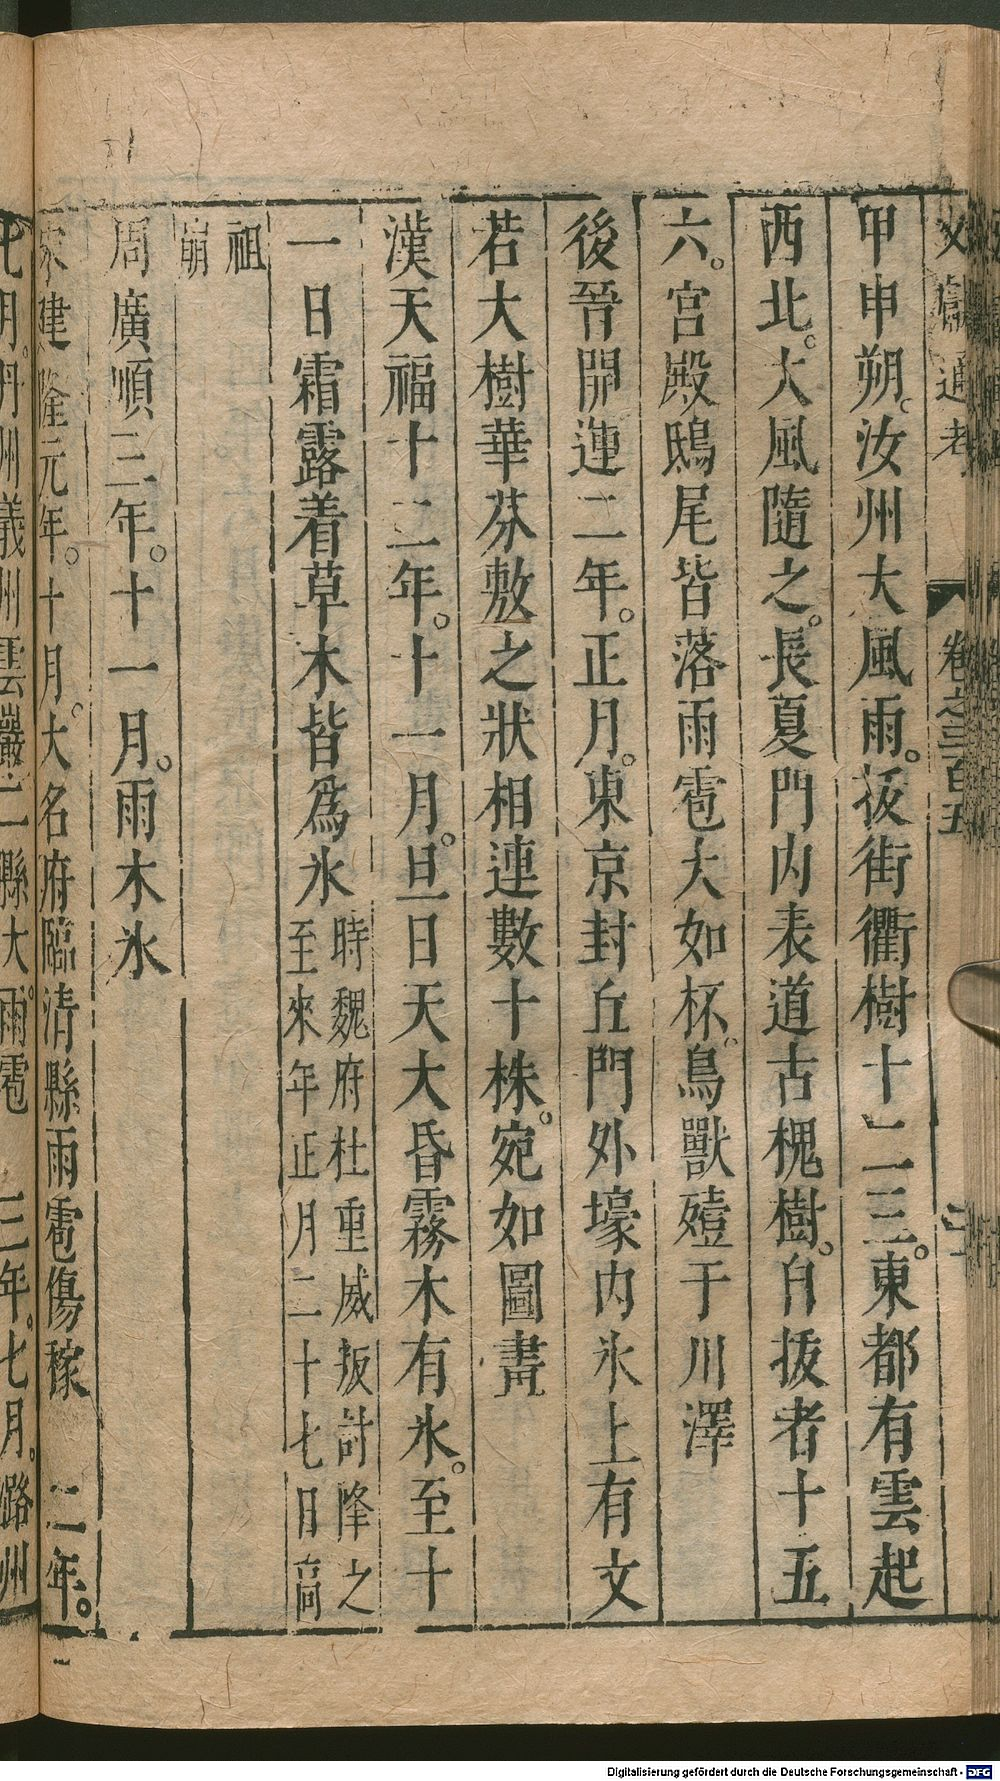 文獻通考　卷之三百五
甲申朔。汝州大風雨。拔街衢樹十二三。東都有雲起
西北。大風隨之。長夏門內表道古槐樹。自拔者十五
六。宮殿鴟尾皆落雨雹大如杯。鳥獸殪于川澤
後晉開運二年。正月。東京封丘門外壕內氷上有文
若大樹華芬敷之狀相連數十株。宛如圖畫
漢天福十二年。十一月。旦日天大昏霧木有氷。至十
一日霜露着草木皆爲氷
時魏府杜重威扳討降之
至來年正月二十七日高
祖
崩
周廣順三年。十一月。雨木氷
宋建隆元年。十月。大名府臨清縣雨雹傷稼　二年。
七月。丹州義州雲巖二縣大。雨雹　三年。七月。潞州
Digitalisierung gefördert durch die Deutsche Forschungsgemeinschaft - DFG